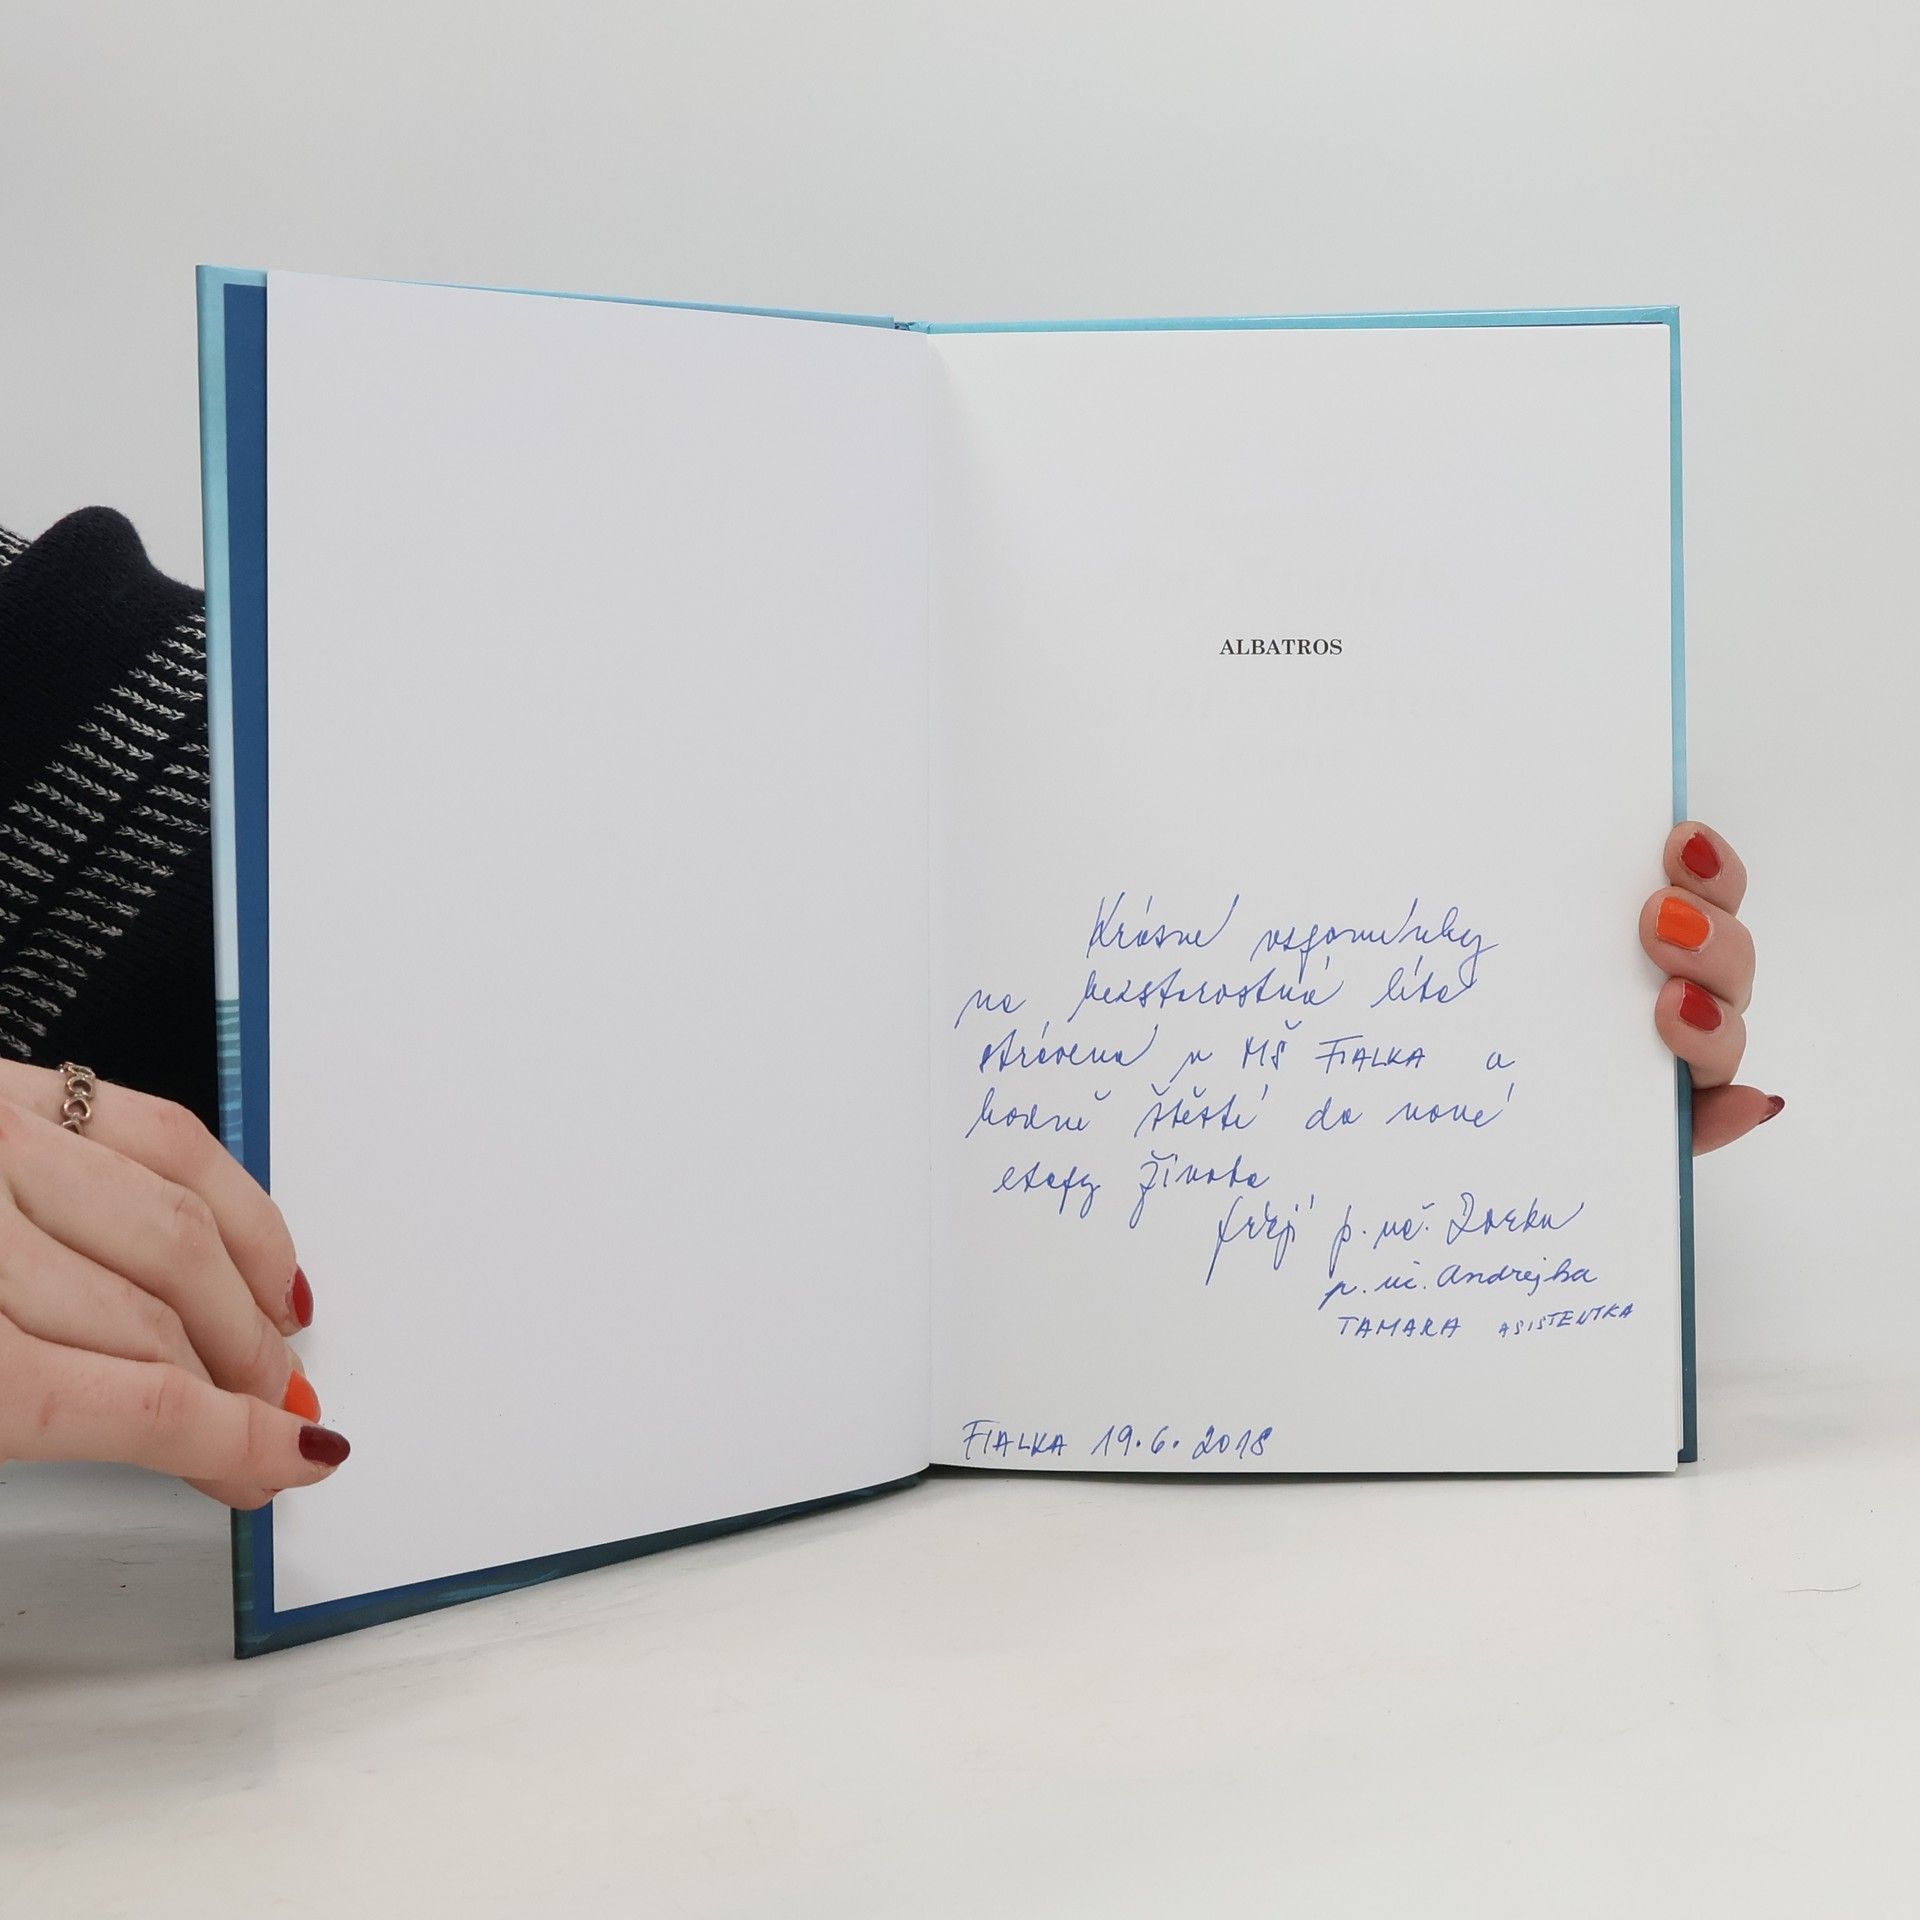 ALBATROS
Krásné vzpomínky
na bezstarostná léta
strávená v MŠ FIALKA a
hodně štěstí do nové
etapy života
přejí p. uč. Zorka
p. uč. Andrejka
TAMARA ASISTENTKA
FIALKA 19.6.2018